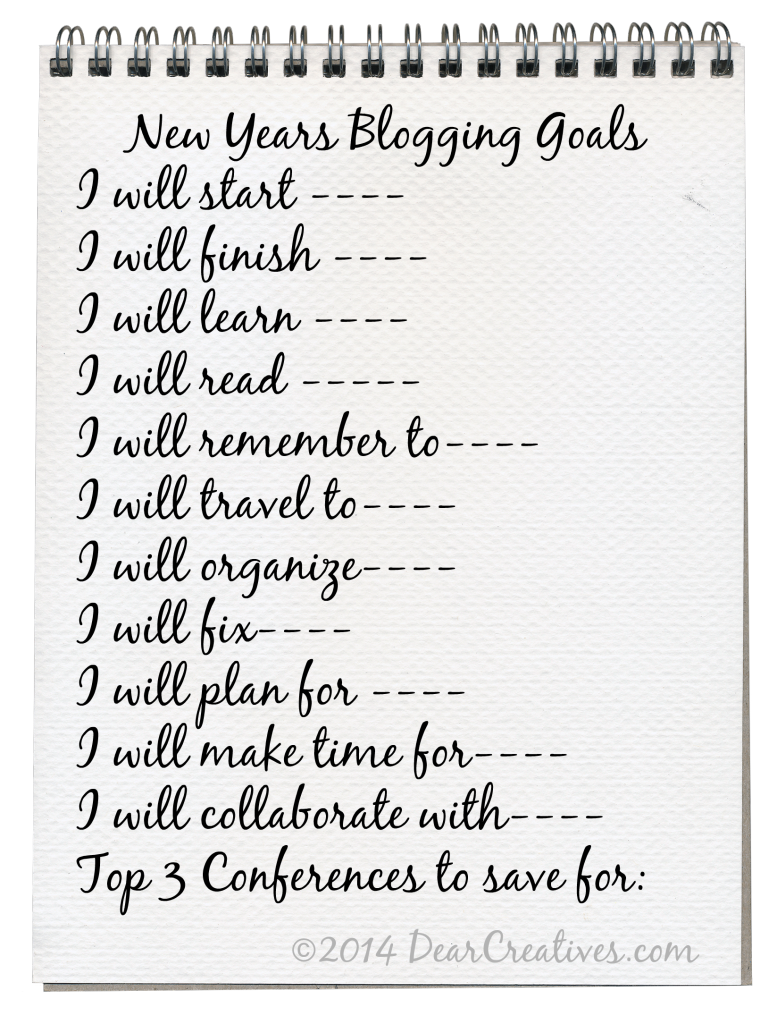 New Years Blogging Goals
I will start ----
I will finish ----
I will learn ----
I will read -----
I will remember to----
I will travel to----
I will organize----
I will fix----
I will plan for ----
I will make time for----
I will collaborate with----
Top 3 Conferences to save for:
©2014 DearCreatives.com